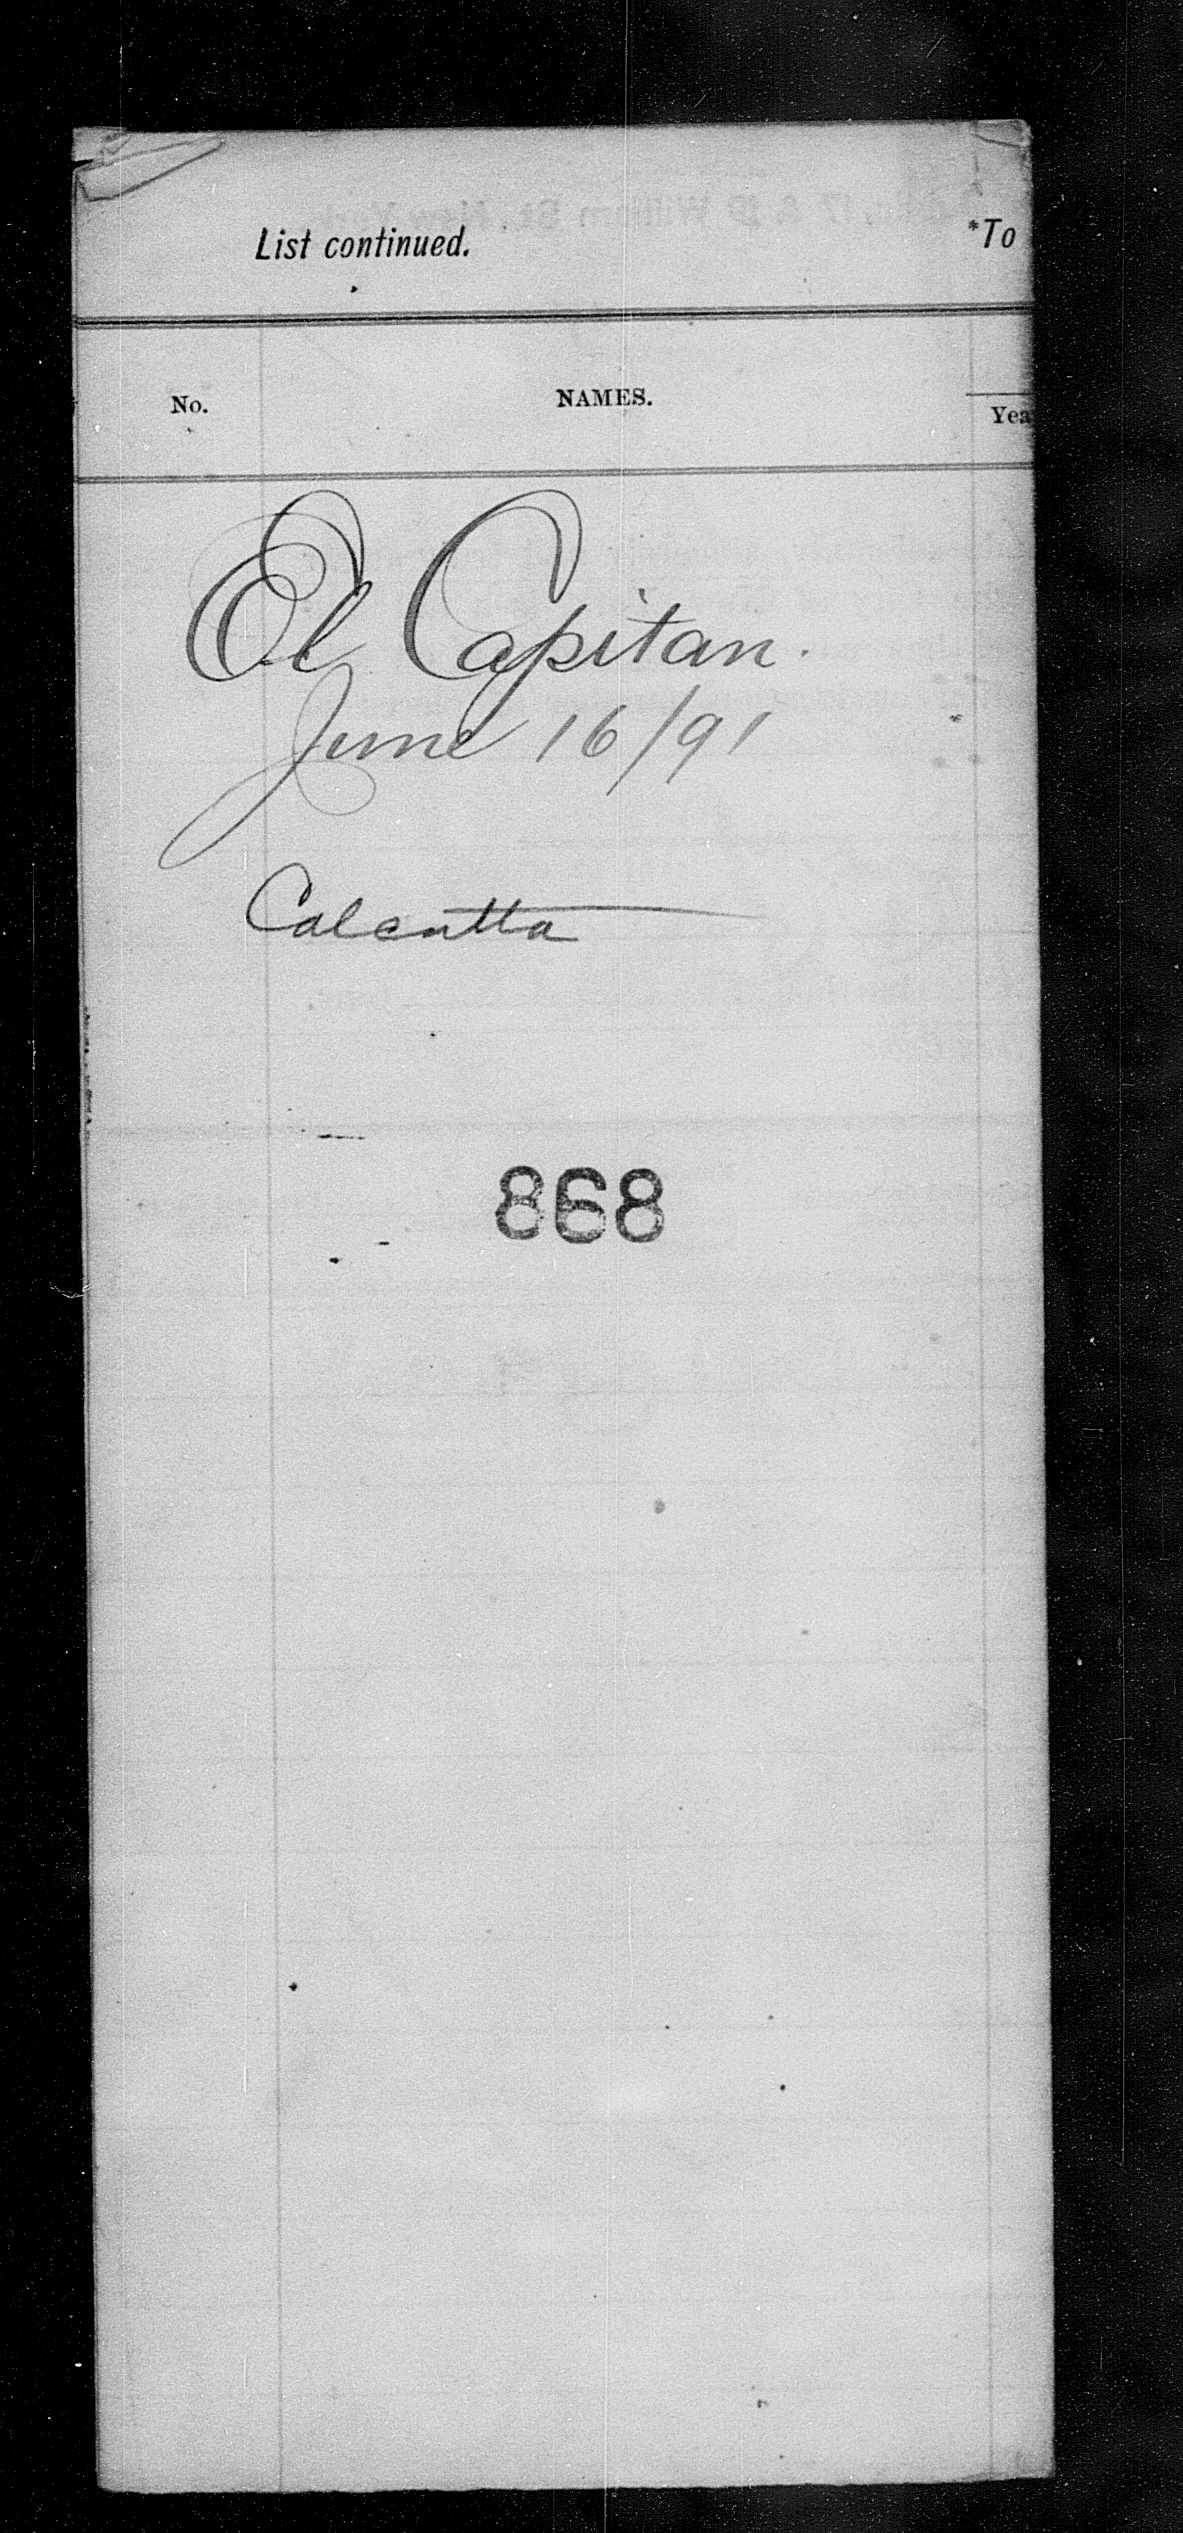 List continued.
*To
No.
NAMES.
Yea
El Capitan.
June 16/91
Calcutta
868